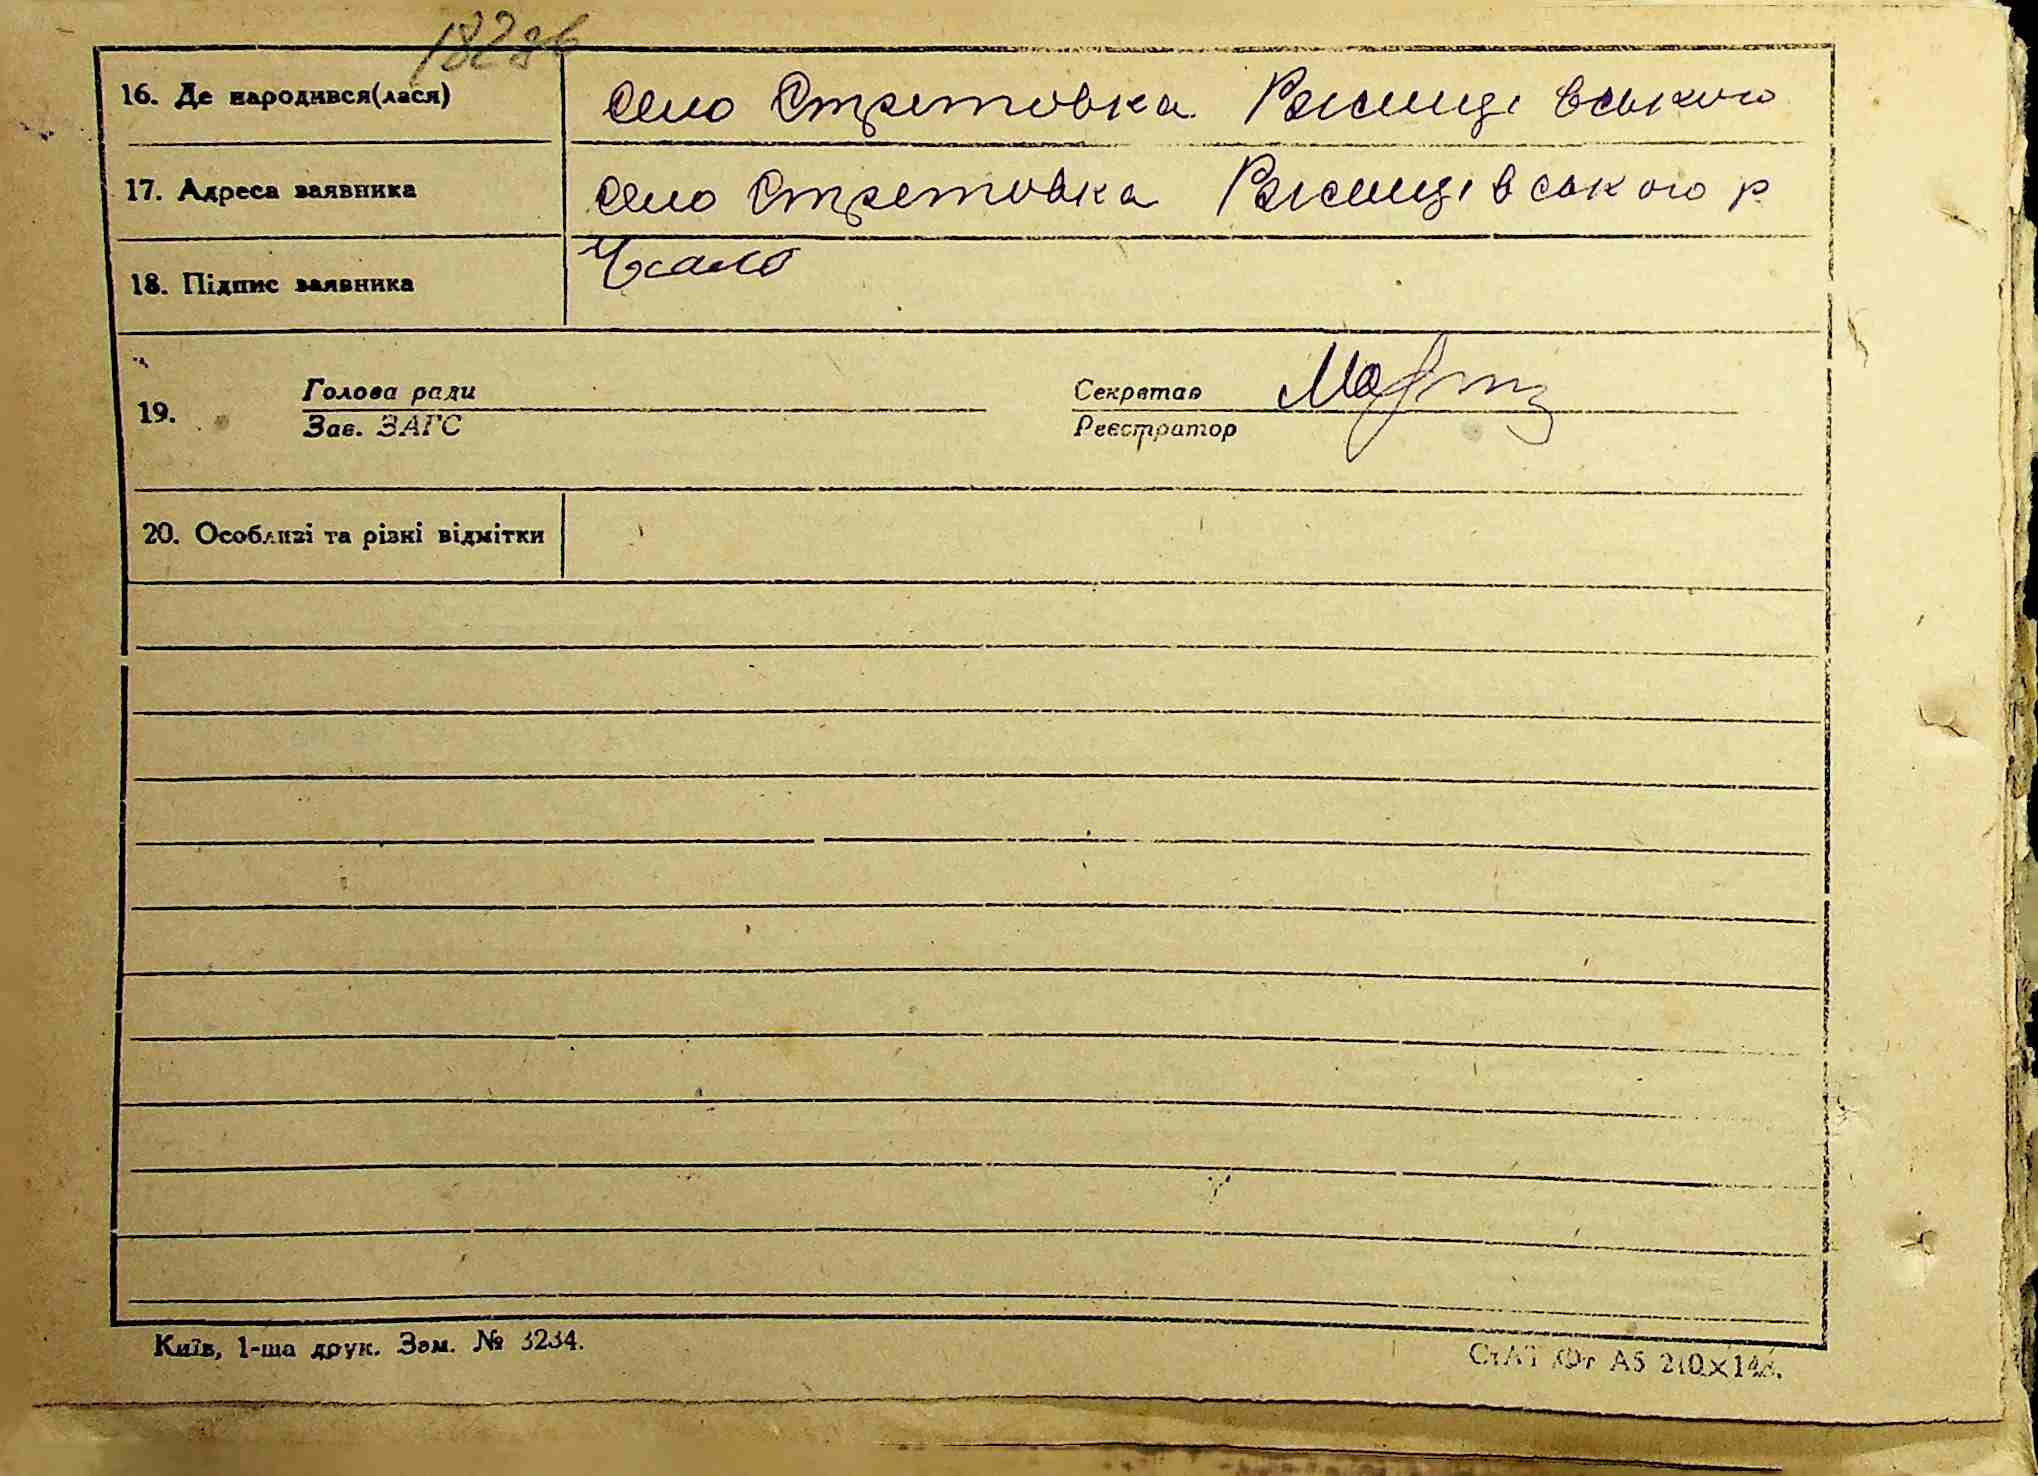 182 зв
16. Де народився(лася) село Стретовка Ржищівського
17. Адреса заявника село Стретовка Ржищівського р
18. Підпис заявника
Голова ради Секретар
19.
Зав. ЗАГС Реєстратор
20. Особливі та різні відмітки
Київ, 1-ша друк. Зам. № 3234. СтАТ Фт А5 210×148.